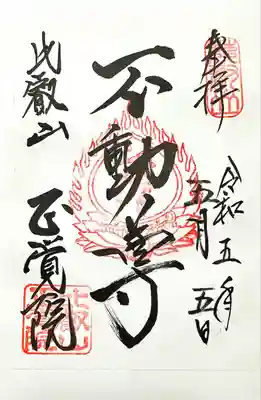 奉拝
令和五年五月五日
不動尊
比叡山
正覚院